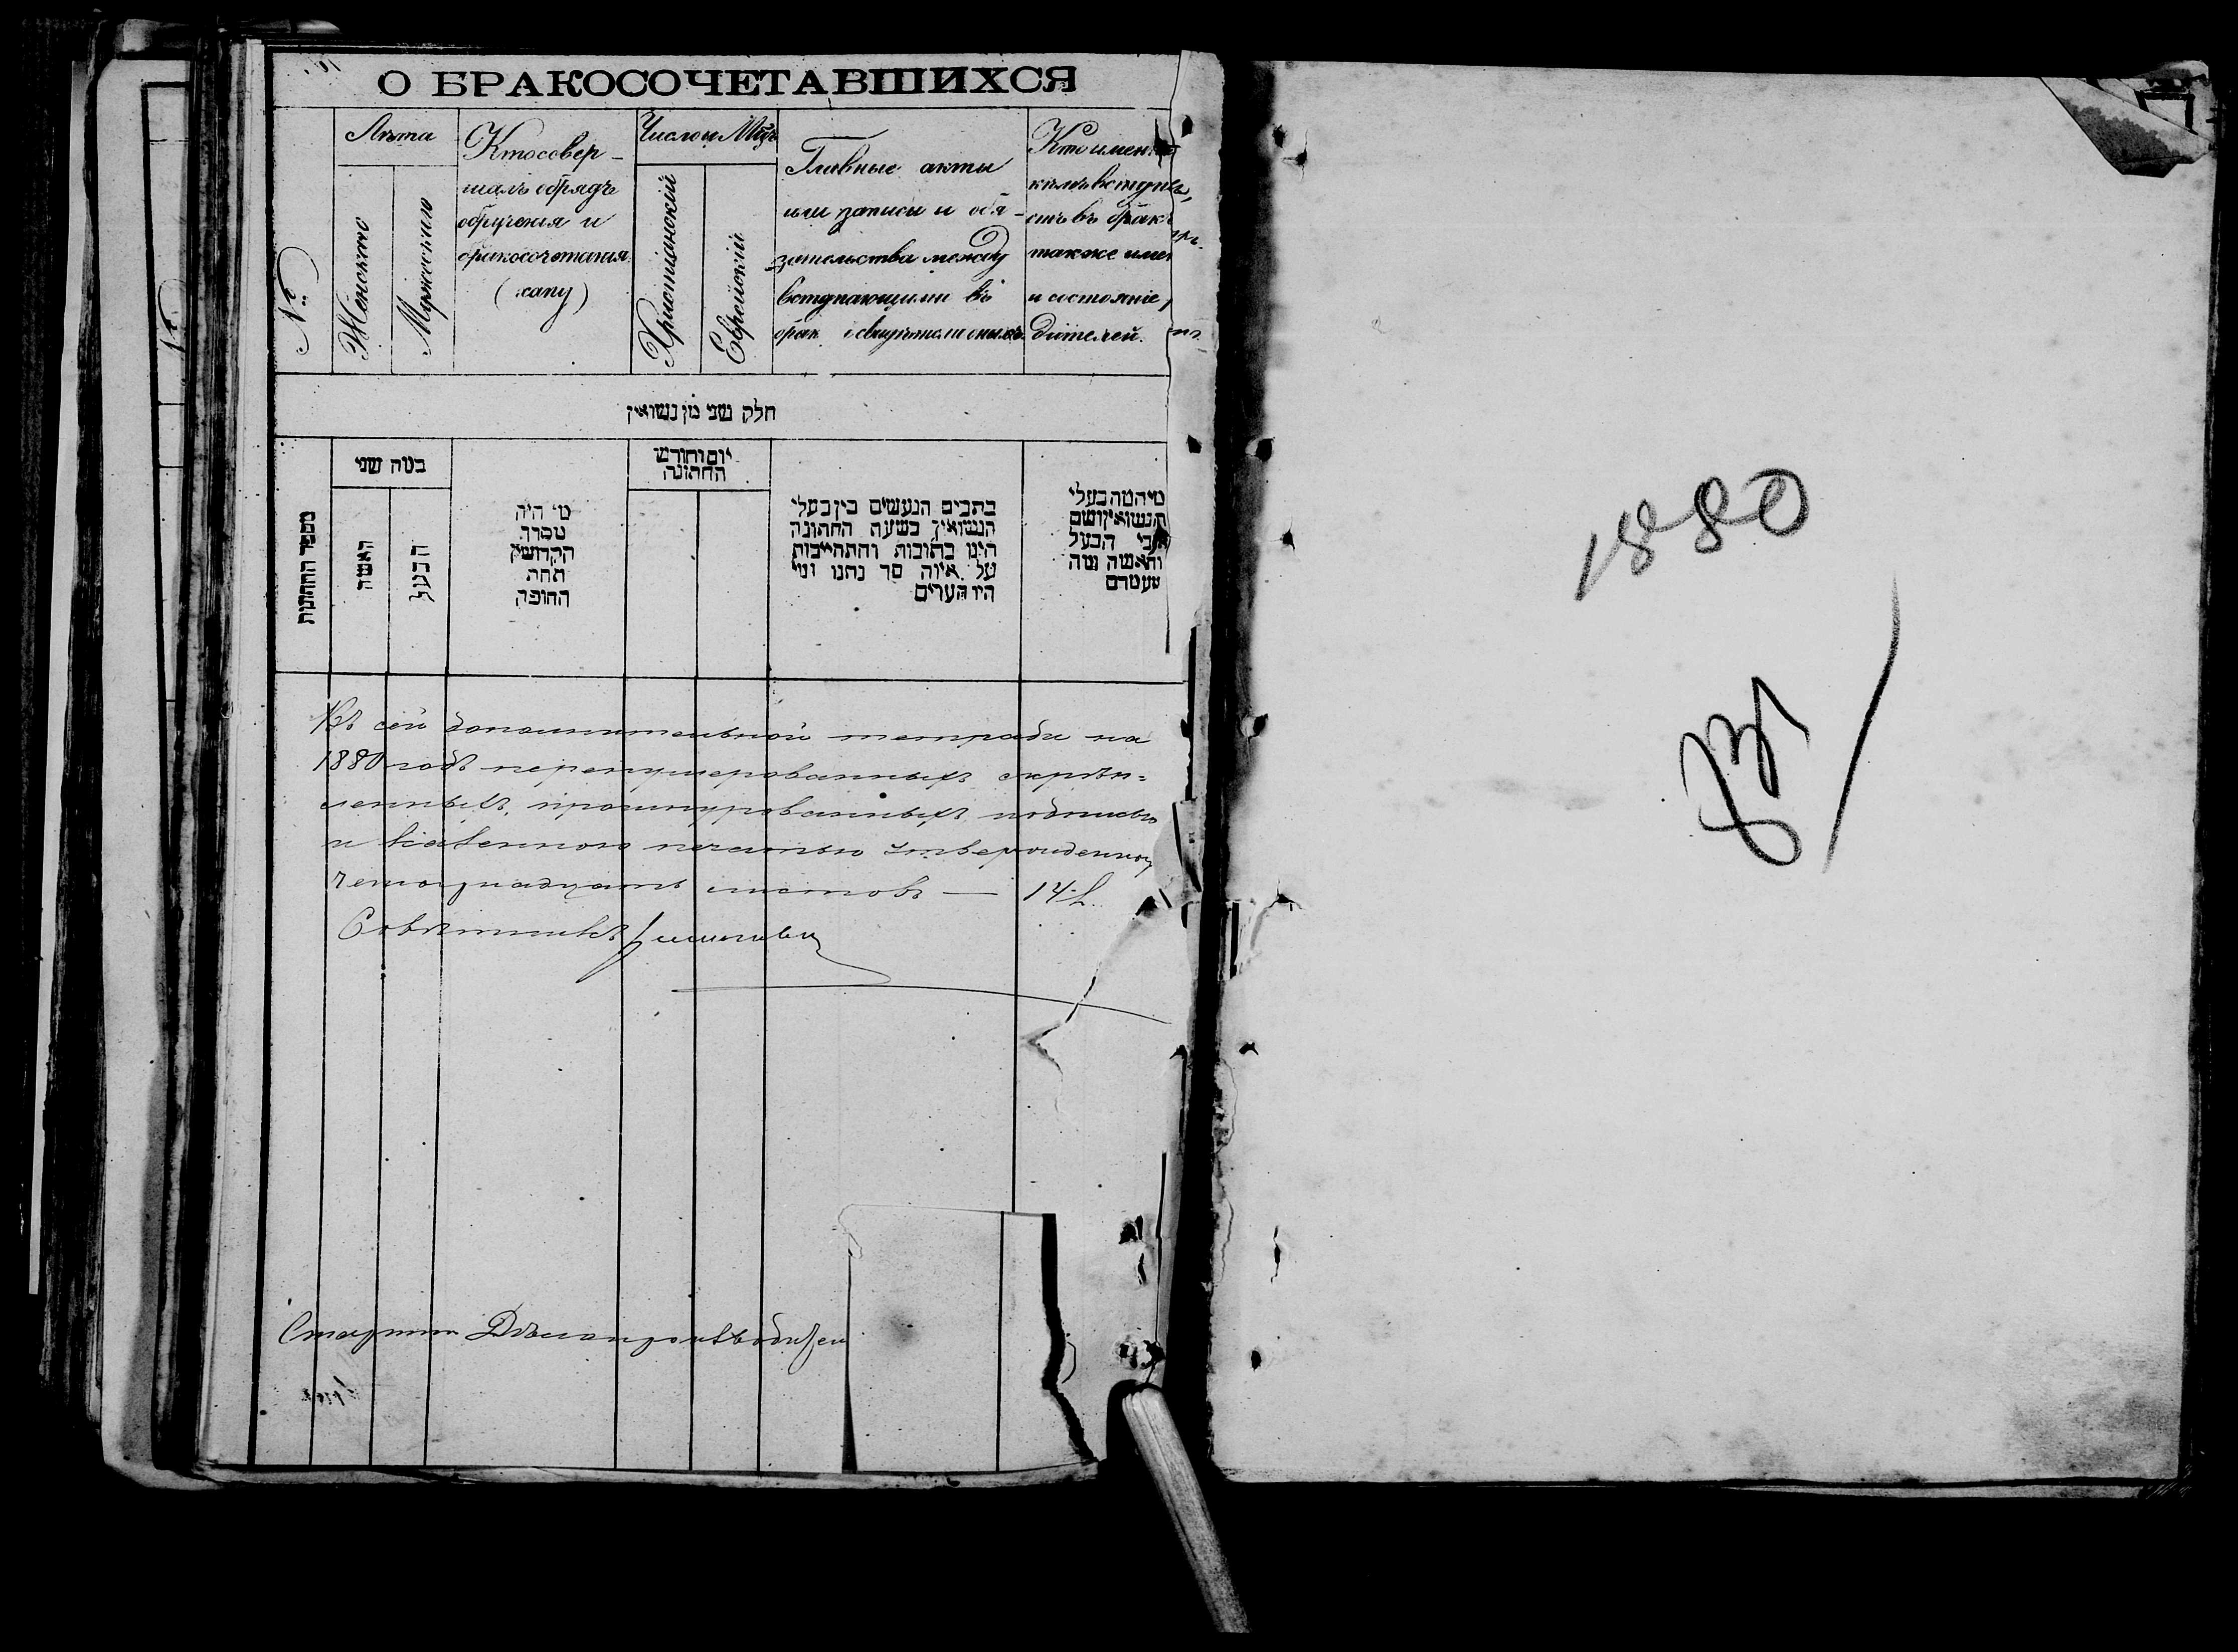 О БРАКОСОЧЕТАВШИХСЯ
№
Лѣта
Женскаго
Мужескаго
Кто совер-
шалъ обрядъ
обрученія и
бракосочетанія.
Число и Мѣ
Христіанскій
Еврейскій
Главные акты
или записи и обя-
зательства между
вступающими въ
брак
Кто имен
кѣмъ вступ
въ брак
также име
и состояніе
дителей.
חלק שני מן נשואין
מספר החתונות
כמה שני
האשה
הבעל
מי היה
מסדר
הקדושין
תחת
החופה
יום וחודש
החתונה
כתבים הנעשים בין בעלי
הנשואין בשעת החתונה
היינו כתובות והתחייבות
על איזה סך נתנו ומי
היו העדים
מי המה בעלי
הנשואין ושם
אבי הבעל
והאשה ומה
מעמדם
Въ сей дополнительной тетради на
1880 годъ перенумерованныхъ скрѣп-
ленныхъ, прошнурованныхъ подписью
и казенною печатью утвержденною
четырнадцать листовъ — 14 л.
Совѣтникъ
Старшій Дѣлопроизводител
1880